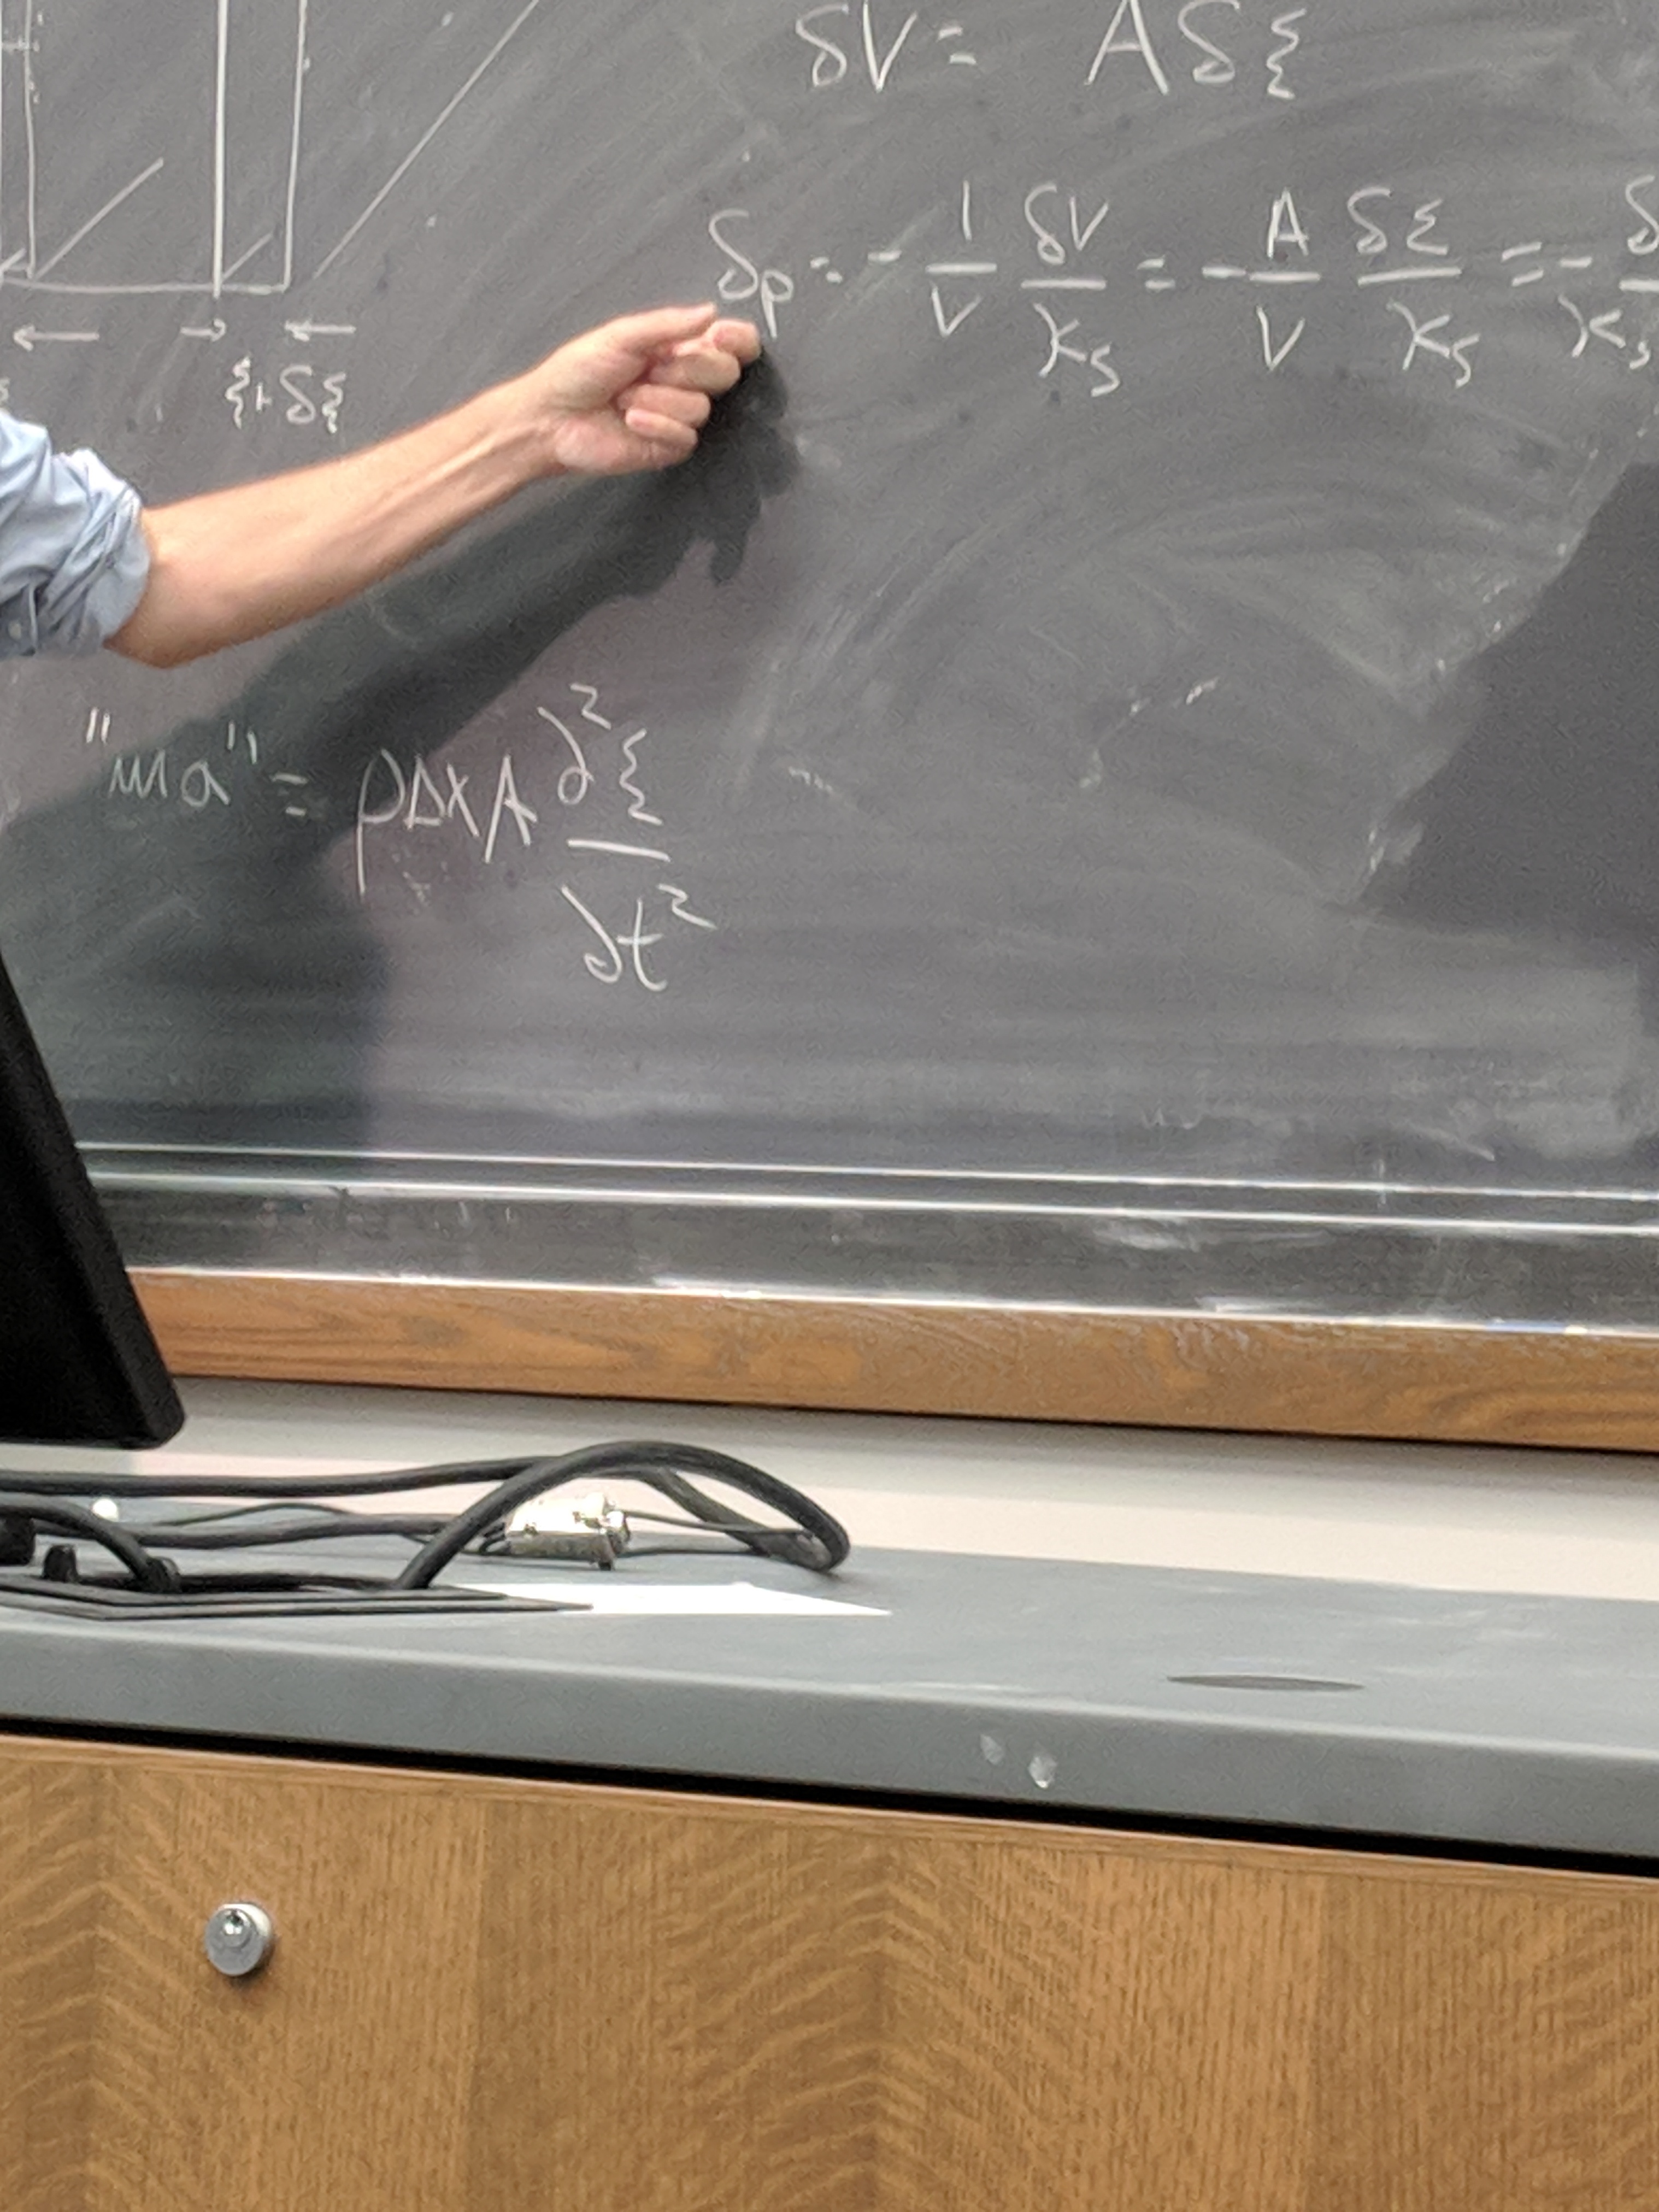 δV = A δξ
δp = - 1/V δV/κs = - A/V δξ/κs = - δ/κs
ξ+δξ
"ma" = ρΔxA ∂²ξ/∂t²